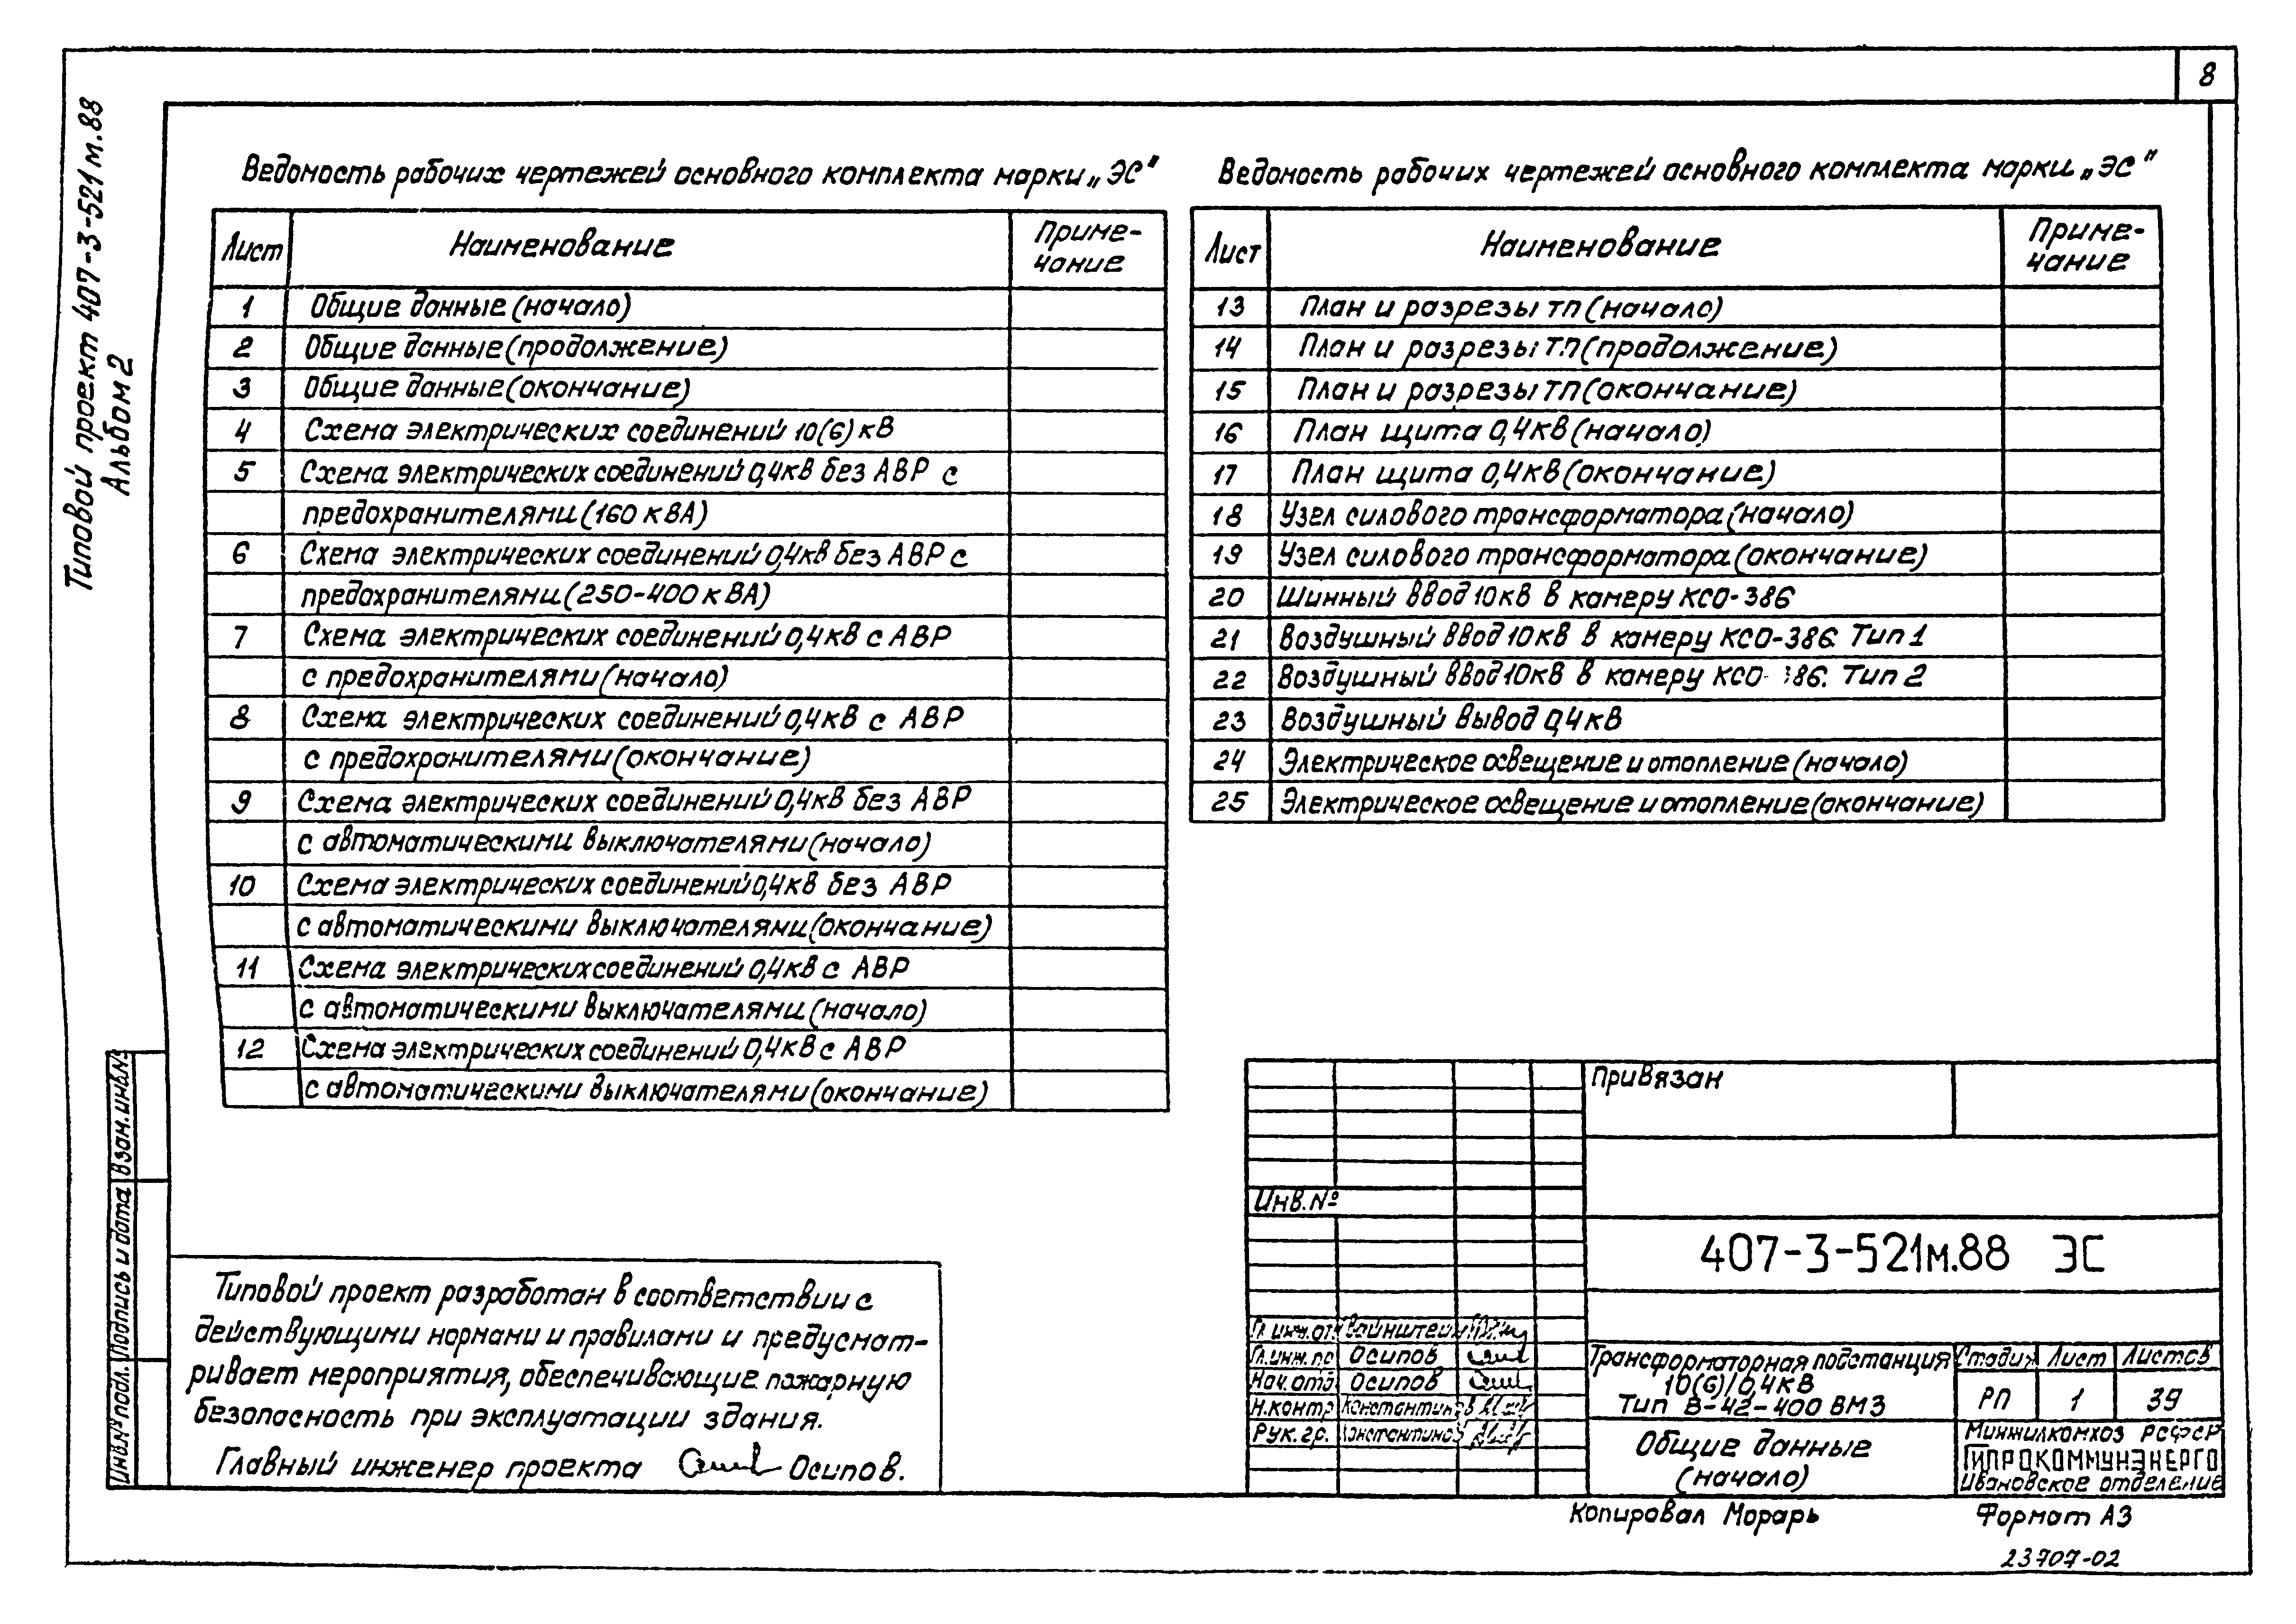 8
Типовой проект 407-3-521м.88
Альбом 2
Ведомость рабочих чертежей основного комплекта марки „ЭС"
Лист Наименование Приме-
чание
1 Общие данные (начало)
2 Общие данные (продолжение)
3 Общие данные (окончание)
4 Схема электрических соединений 10(6) кВ
5 Схема электрических соединений 0,4кВ без АВР с
предохранителями (160 кВА)
6 Схема электрических соединений 0,4кВ без АВР с
предохранителями (250-400 кВА)
7 Схема электрических соединений 0,4кВ с АВР
с предохранителями (начало)
8 Схема электрических соединений 0,4кВ с АВР
с предохранителями (окончание)
9 Схема электрических соединений 0,4кВ без АВР
с автоматическими выключателями (начало)
10 Схема электрических соединений 0,4кВ без АВР
с автоматическими выключателями (окончание)
11 Схема электрических соединений 0,4кВ с АВР
с автоматическими выключателями (начало)
12 Схема электрических соединений 0,4кВ с АВР
с автоматическими выключателями (окончание)
Ведомость рабочих чертежей основного комплекта марки „ЭС"
Лист Наименование Приме-
чание
13 План и разрезы ТП (начало)
14 План и разрезы ТП (продолжение)
15 План и разрезы ТП (окончание)
16 План щита 0,4кВ (начало)
17 План щита 0,4кВ (окончание)
18 Узел силового трансформатора (начало)
19 Узел силового трансформатора (окончание)
20 Шинный ввод 10кВ в камеру КСО-386
21 Воздушный ввод 10кВ в камеру КСО-386. Тип 1
22 Воздушный ввод 10кВ в камеру КСО-386. Тип 2
23 Воздушный вывод 0,4кВ
24 Электрическое освещение и отопление (начало)
25 Электрическое освещение и отопление (окончание)
Типовой проект разработан в соответствии с
действующими нормами и правилами и предусмат-
ривает мероприятия, обеспечивающие пожарную
безопасность при эксплуатации здания.
Главный инженер проекта Осипов.
Инв.№ подл. Подпись и дата Взам.инв.№
Привязан
Инв.№
407-3-521м.88 ЭС
Гл.инж.от. Вайнштейн
Гл.инж.пр Осипов
Нач.отд Осипов
Н.контр Константинов
Рук.гр. Константинов
Трансформаторная подстанция
10(6)/0,4кВ
Тип В-42-400 ВМ3
Стадия Лист Листов
РП 1 39
Общие данные
(начало)
Минжилкомхоз РСФСР
ГИПРОКОММУНЭНЕРГО
Ивановское отделение
Копировал Морарь Формат А3
23707-02